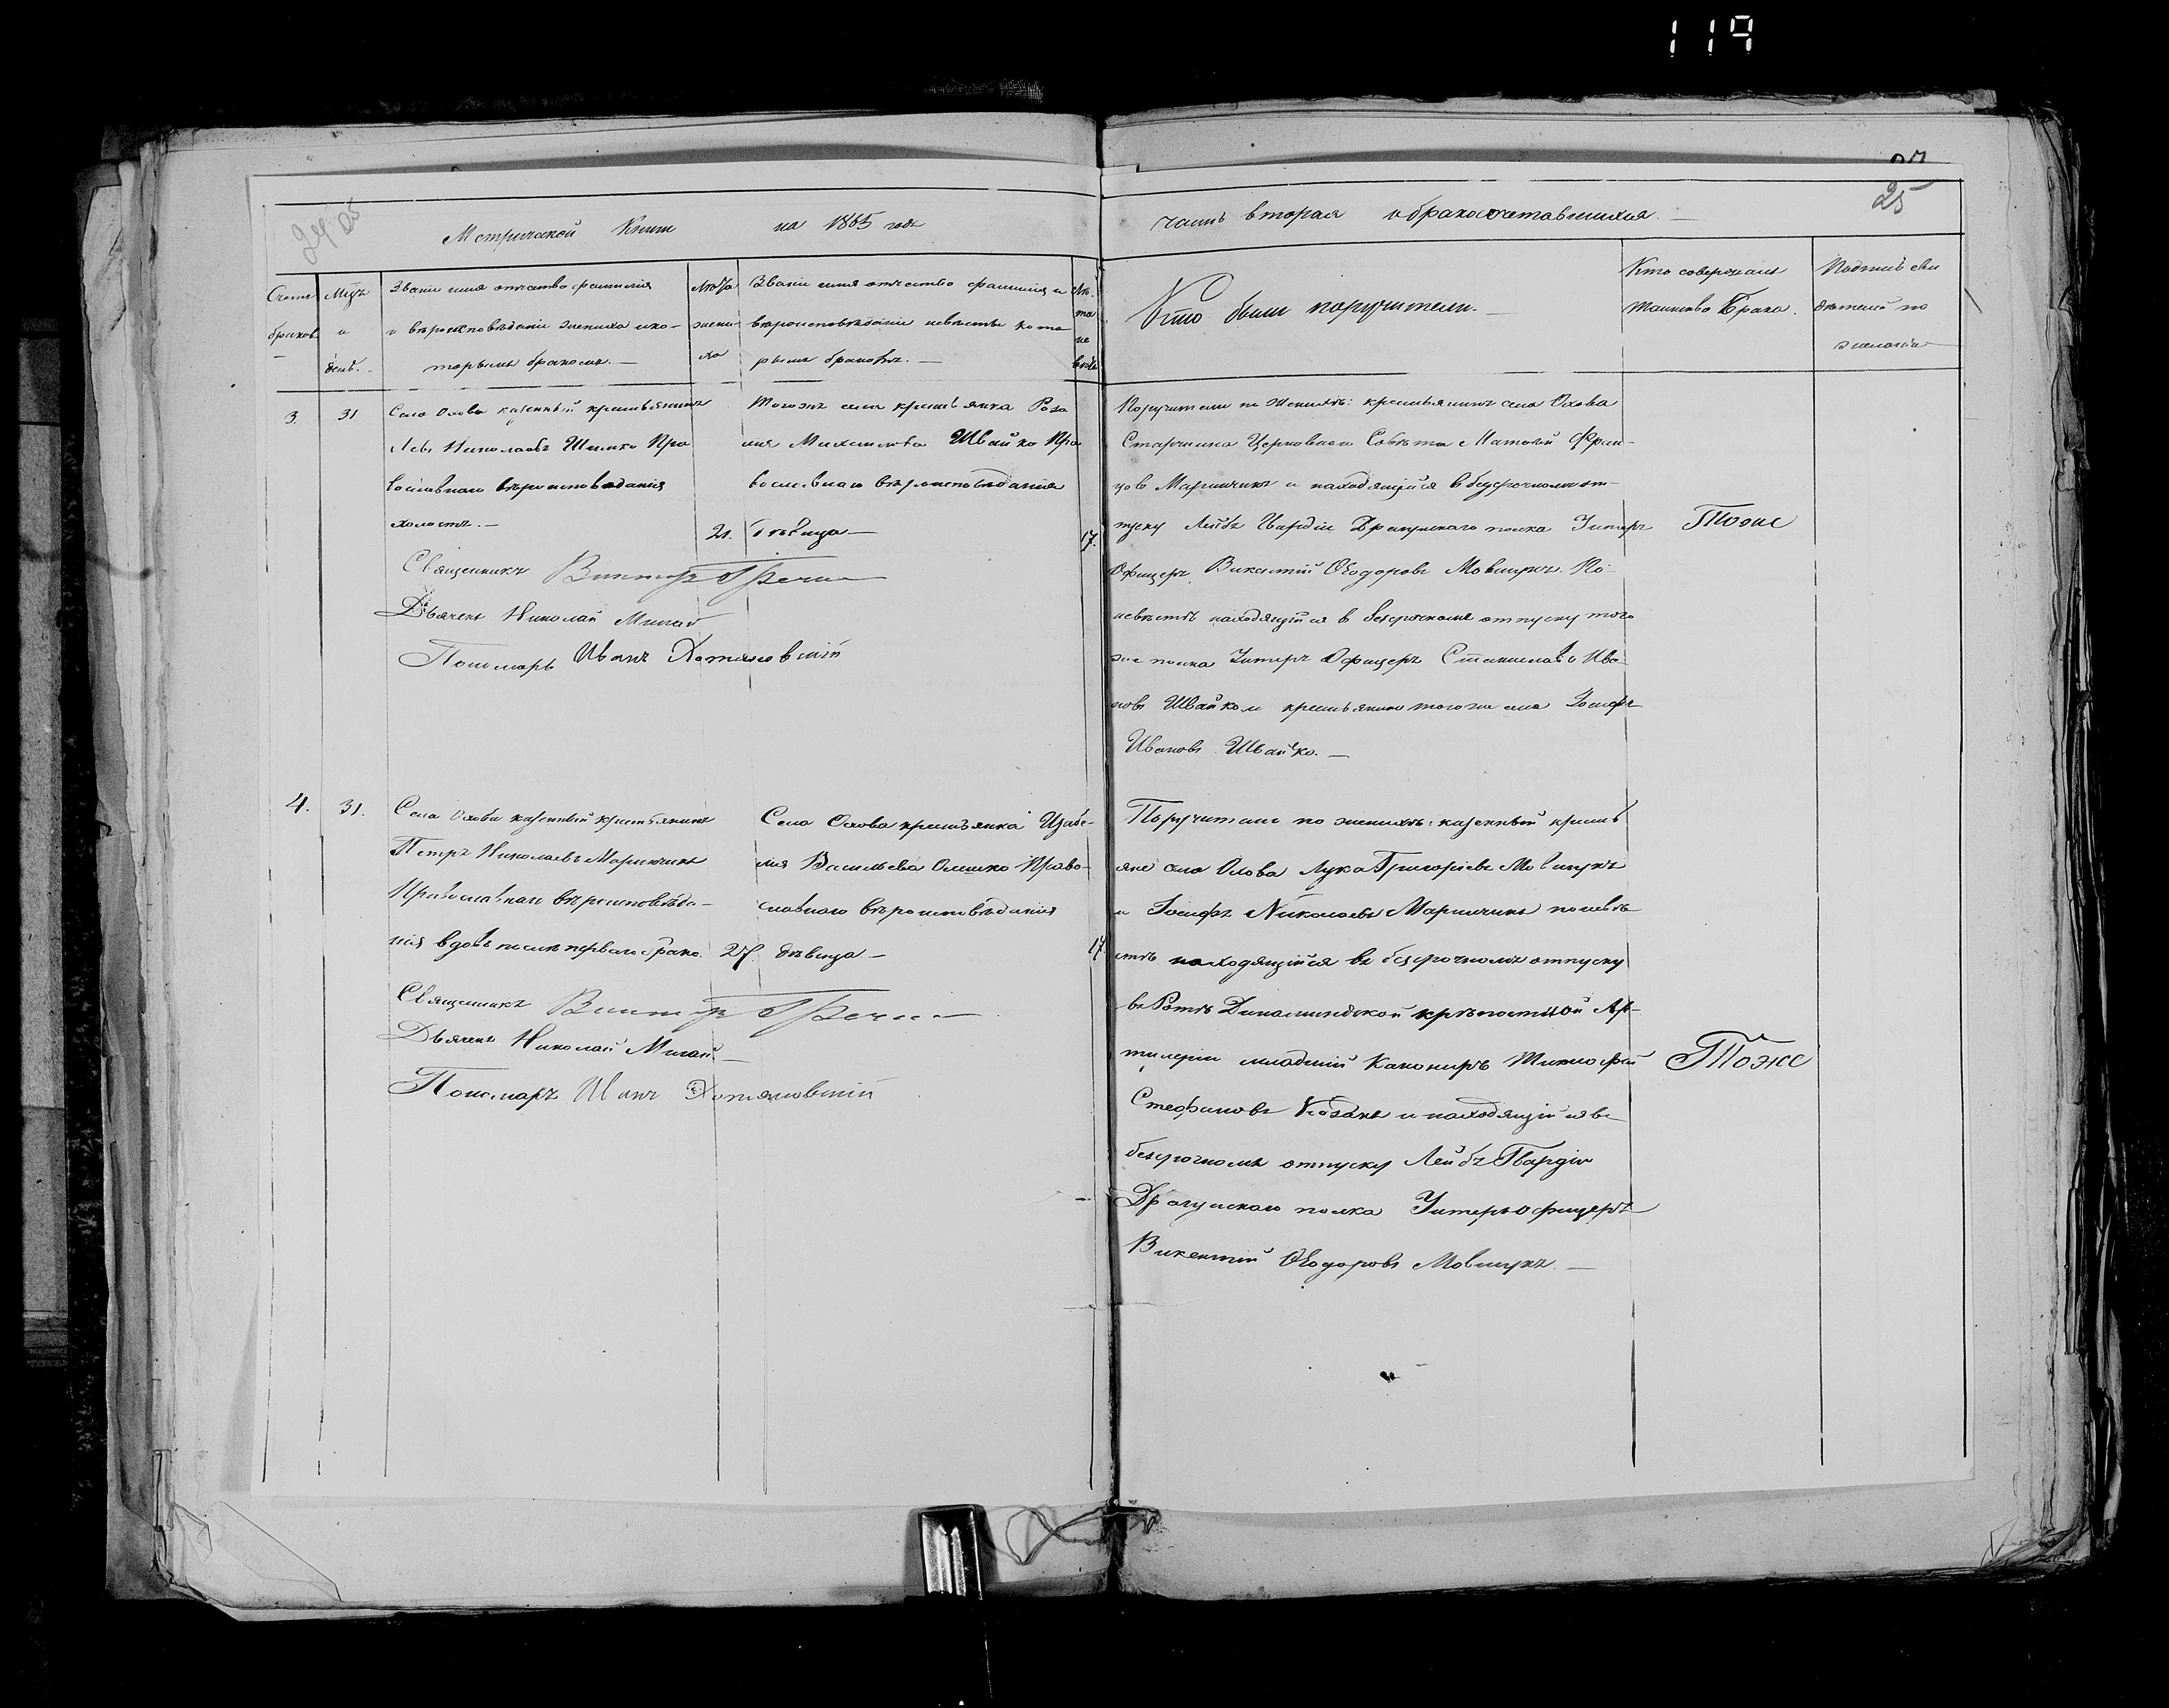 119
25
Метрической Книги на 1865 годъ
часть вторая о бракосочетавшихся.
Счетъ браковъ
Мѣцъ и день.
Званіе имя отчество фамилія
и вѣроисповѣданіе жениха и ко-
торымъ бракомъ.
Лѣта жени-
ха
Званіе имя отчество фамилія и
вѣроисповѣданіе невѣсты кото
рымъ бракомъ.
Лѣ-
та
не
вѣсты
Кто были поручители.
Кто совершалъ
таинство Брака.
Подпись сви
дѣтелей по
желанію
3.
31
Села Охова казенный крестьянинъ
Левъ Николаевъ Шишко Пра
вославнаго вѣроисповѣданія
холостъ.
21.
Тогоже села крестьянка Роза
лія Михаилова Швайко Пра
вославнаго вѣроисповѣданія
дѣвица
17.
Поручители по женихѣ: крестьянинъ села Охова
Старшина Церковнаго Совѣта Матѳей Фран-
цовъ Маринчикъ и находящійся в безсрочномъ от-
пуску Лейбъ Гвардіи Драгунскаго полка Унтеръ
Офицеръ Викентій Ѳеодоровъ Мовшукъ. По
невѣстѣ находящійся в безсрочномъ отпуску того
же полка Унтеръ Офицеръ Станиславъ Ива-
новъ Швайко и крестьянинъ тогоже села Іосифъ
Ивановъ Швайко.
Тоже
Священникъ Викторъ
Дьячекъ Николай Мигай
Пономарь Иванъ Хотяновскій
4.
31.
Села Охова казенный крестьянинъ
Петръ Николаевъ Маринчикъ
Православнаго вѣроисповѣда-
нія вдовъ послѣ перваго брака.
27.
Села Охова крестьянка Изабе-
лія Васильева Олешко Право-
славнаго вѣроисповѣданія
дѣвица
17
Поручители по женихѣ: казенный кресть
яне села Охова Лука Григорьевъ Мовшукъ
и Іосифъ Николаевъ Маринчикъ по невѣ
стѣ находящійся въ безсрочномъ отпуску
въ Ротѣ Динаминдской крѣпостной Ар-
тилеріи младшій Канониръ Тимофей
Стефановъ Козакъ и находящійся въ
безсрочномъ отпуску Лейбъ Гвардіи
Драгунскаго полка Унтеръ офицеръ
Викентій Ѳеодоровъ Мовшукъ.
Тоже
Священникъ Викторъ
Дьячекъ Николай Мигай
Пономарь Иванъ Хотяновскій